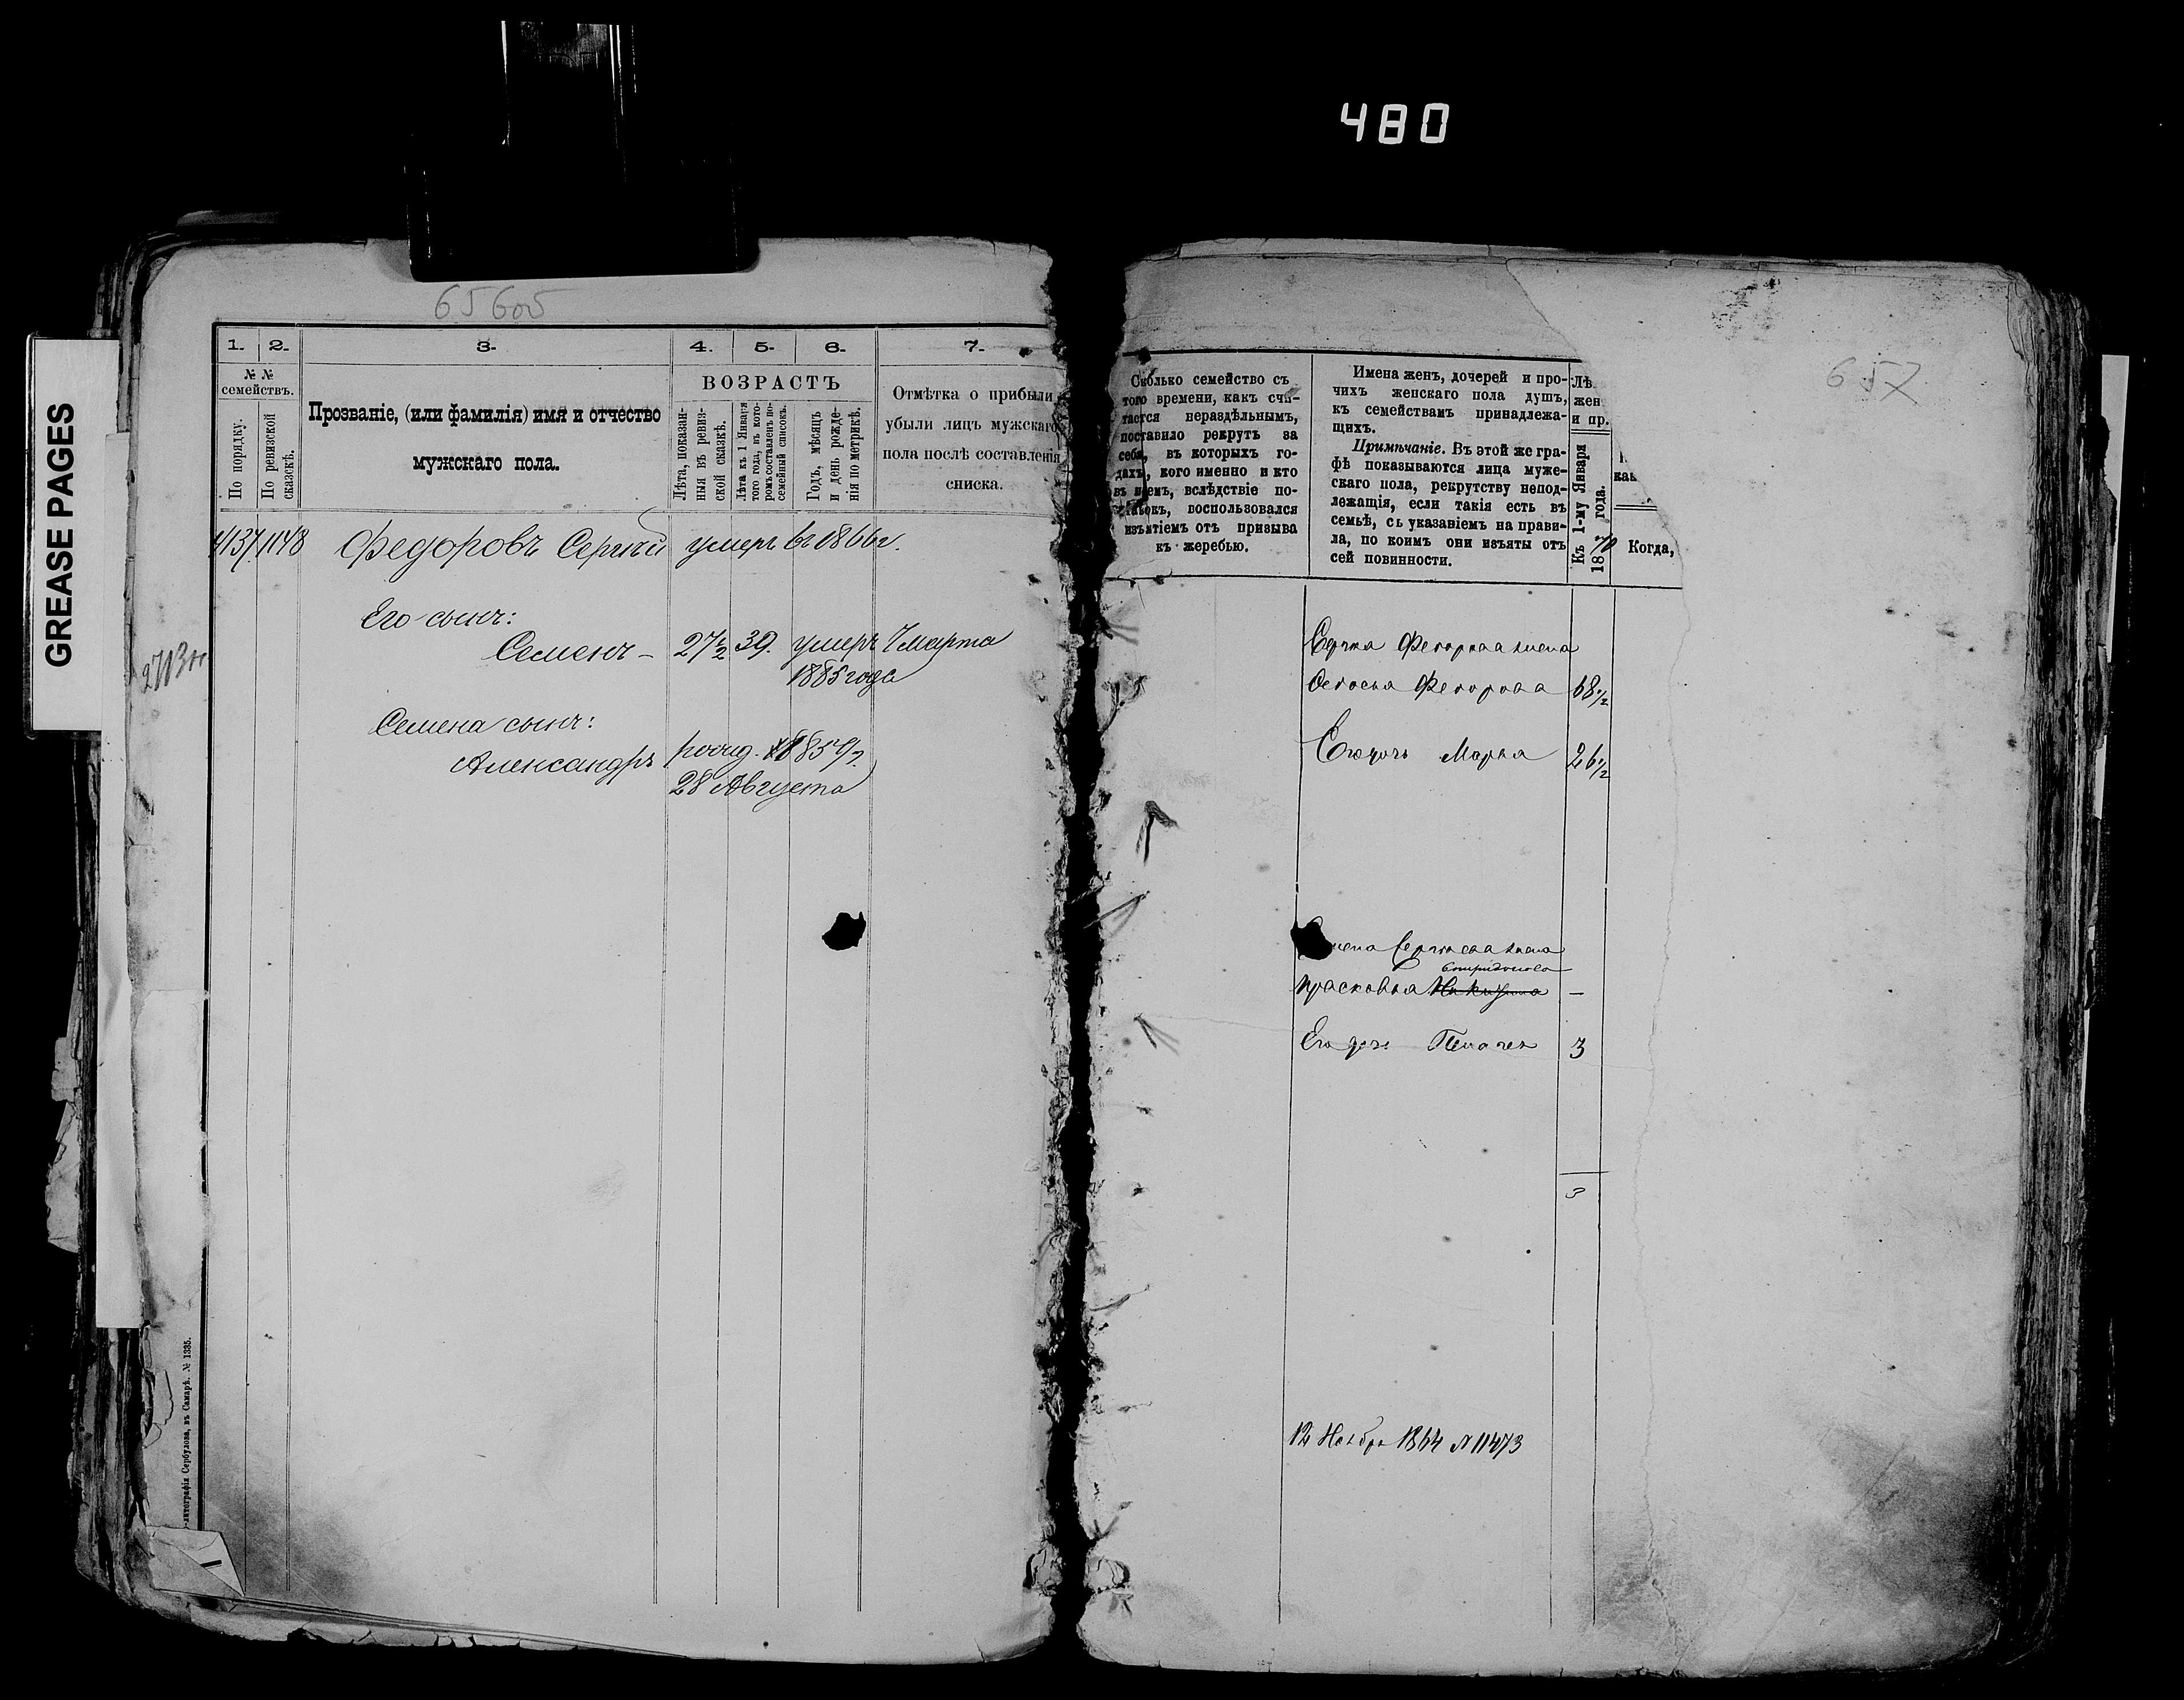 480
GREASE PAGES
65 боб
657
1. 2. 3. 4. 5. 6. 7.
№ №
семействъ.
По порядку.
По ревизской
сказкѣ.
Прозваніе, (или фамилія) имя и отчество
мужскаго пола.
ВОЗРАСТЪ
Лѣта, показан-
ныя въ ревиз-
ской сказкѣ.
Лѣта къ 1 Января
того года, въ кото-
ромъ составленъ по-
семейный списокъ.
Годъ, мѣсяцъ
и день рожде-
нія по метрикѣ.
Отмѣтка о прибыли
убыли лицъ мужскаго
пола послѣ составленія
списка.
4137 1148 Федоровъ Сергѣй умеръ въ 1866 г.
Его сынъ:
Семенъ – 27½ 39. умеръ 7 марта
1885 года
Семена сынъ:
Александръ
28 Августа
литографія Сербулова, въ Самарѣ. № 1335.
Сколько семейство съ
того времени, какъ счи-
тается нераздѣльнымъ,
поставило рекрутъ за
себя, въ которыхъ го-
дахъ, кого именно и кто
въ немъ, вслѣдствіе по-
воспользовался
изъятіемъ отъ призыва
къ жеребью.
Имена женъ, дочерей и про-
чихъ женскаго пола душъ,
къ семействамъ принадлежа-
щихъ.
Примѣчаніе. Въ этой же гра-
фѣ показываются лица муже-
скаго пола, рекрутству непод-
лежащія, если такія есть въ
семьѣ, съ указаніемъ на прави-
ла, по коимъ они изъяты отъ
сей повинности.
Лѣ
жен
и пр.
Къ 1-му Января
1870 года.
Когда,
Сергѣя Федорова жена
Федосья Федорова 68½
Его дочь Марья 26½
мена Сергѣева жена
Спиридонова
Прасковья –
Его дочь Пелагея 3
3
12 Ноября 1864 № 11473